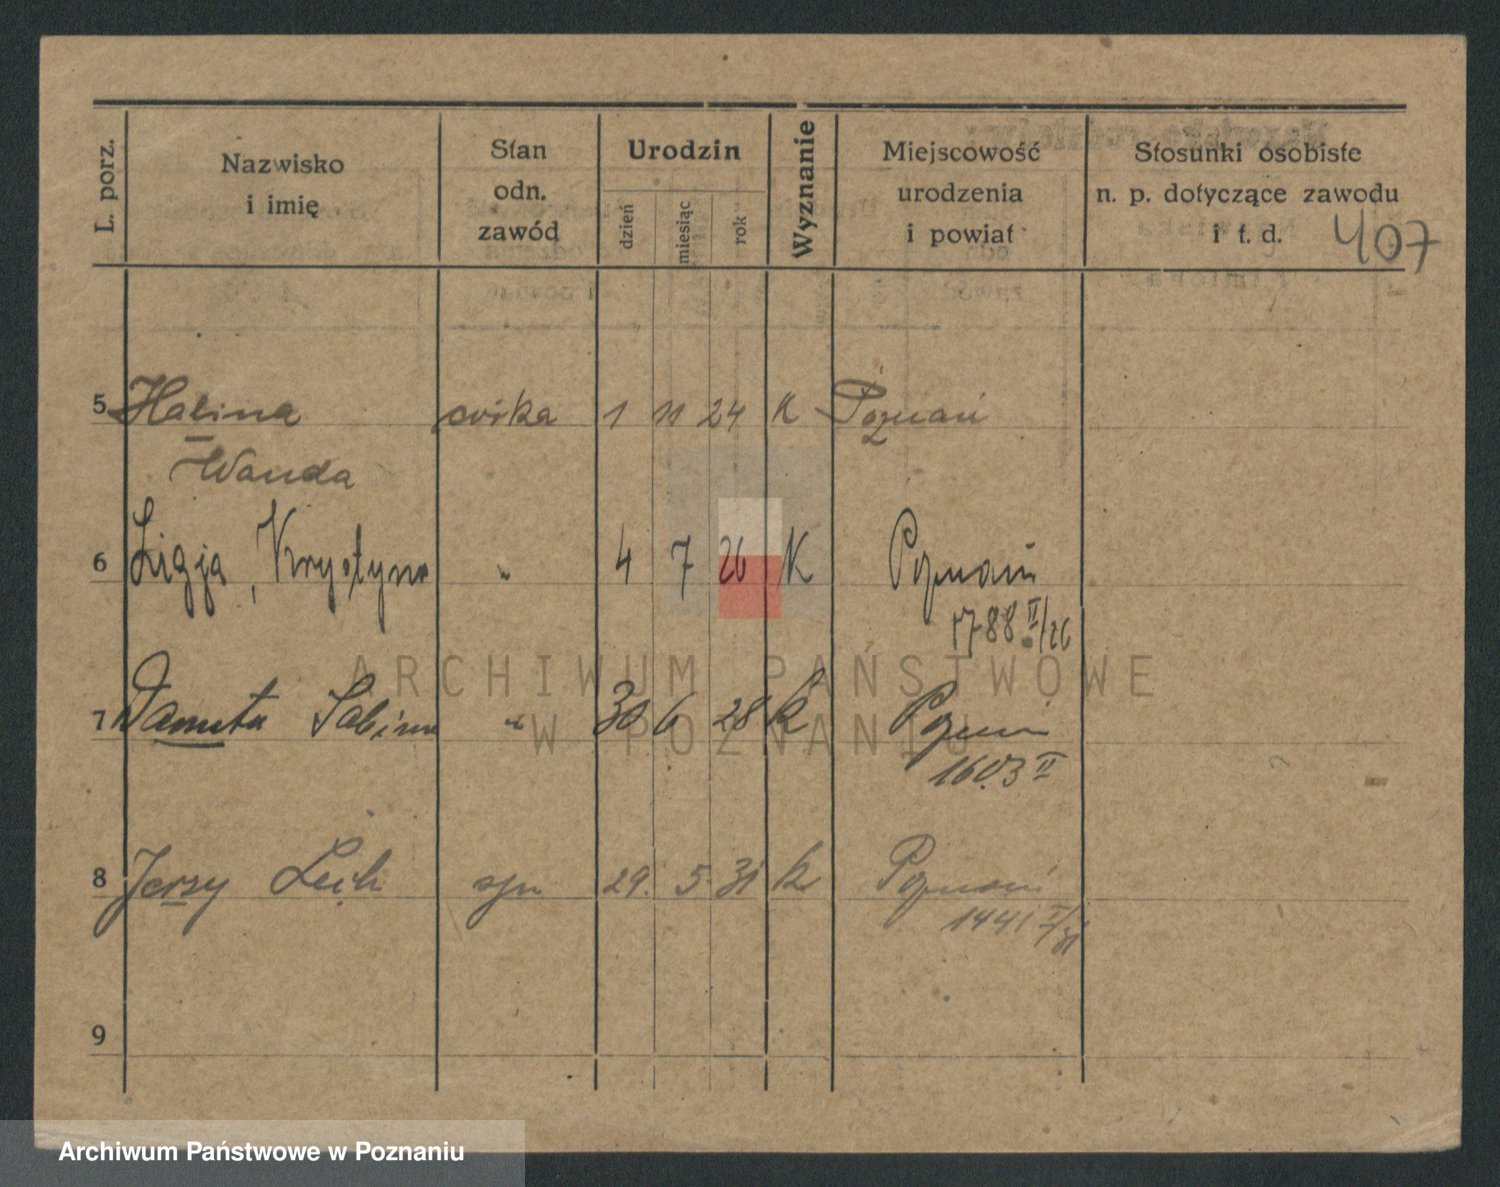 L. porz. Nazwisko i imię Stan odn. zawód Urodzin dzień miesiąc rok Wyznanie Miejscowość urodzenia i powiat Stosunki osobiste n. p. dotyczące zawodu i t. d.
407
5 Halina córka 1 11 24 K Poznań
Wanda
6 Ligja, Krystyna " 4 7 26 K Poznań
1788 II/26
7 Danuta Sabina " 30 6 28 k Poznań
1603 II
8 Jerzy Lech syn 29. 5 31 k Poznań
1441 I/31
9
ARCHIWUM PAŃSTWOWE
W POZNANIU
Archiwum Państwowe w Poznaniu